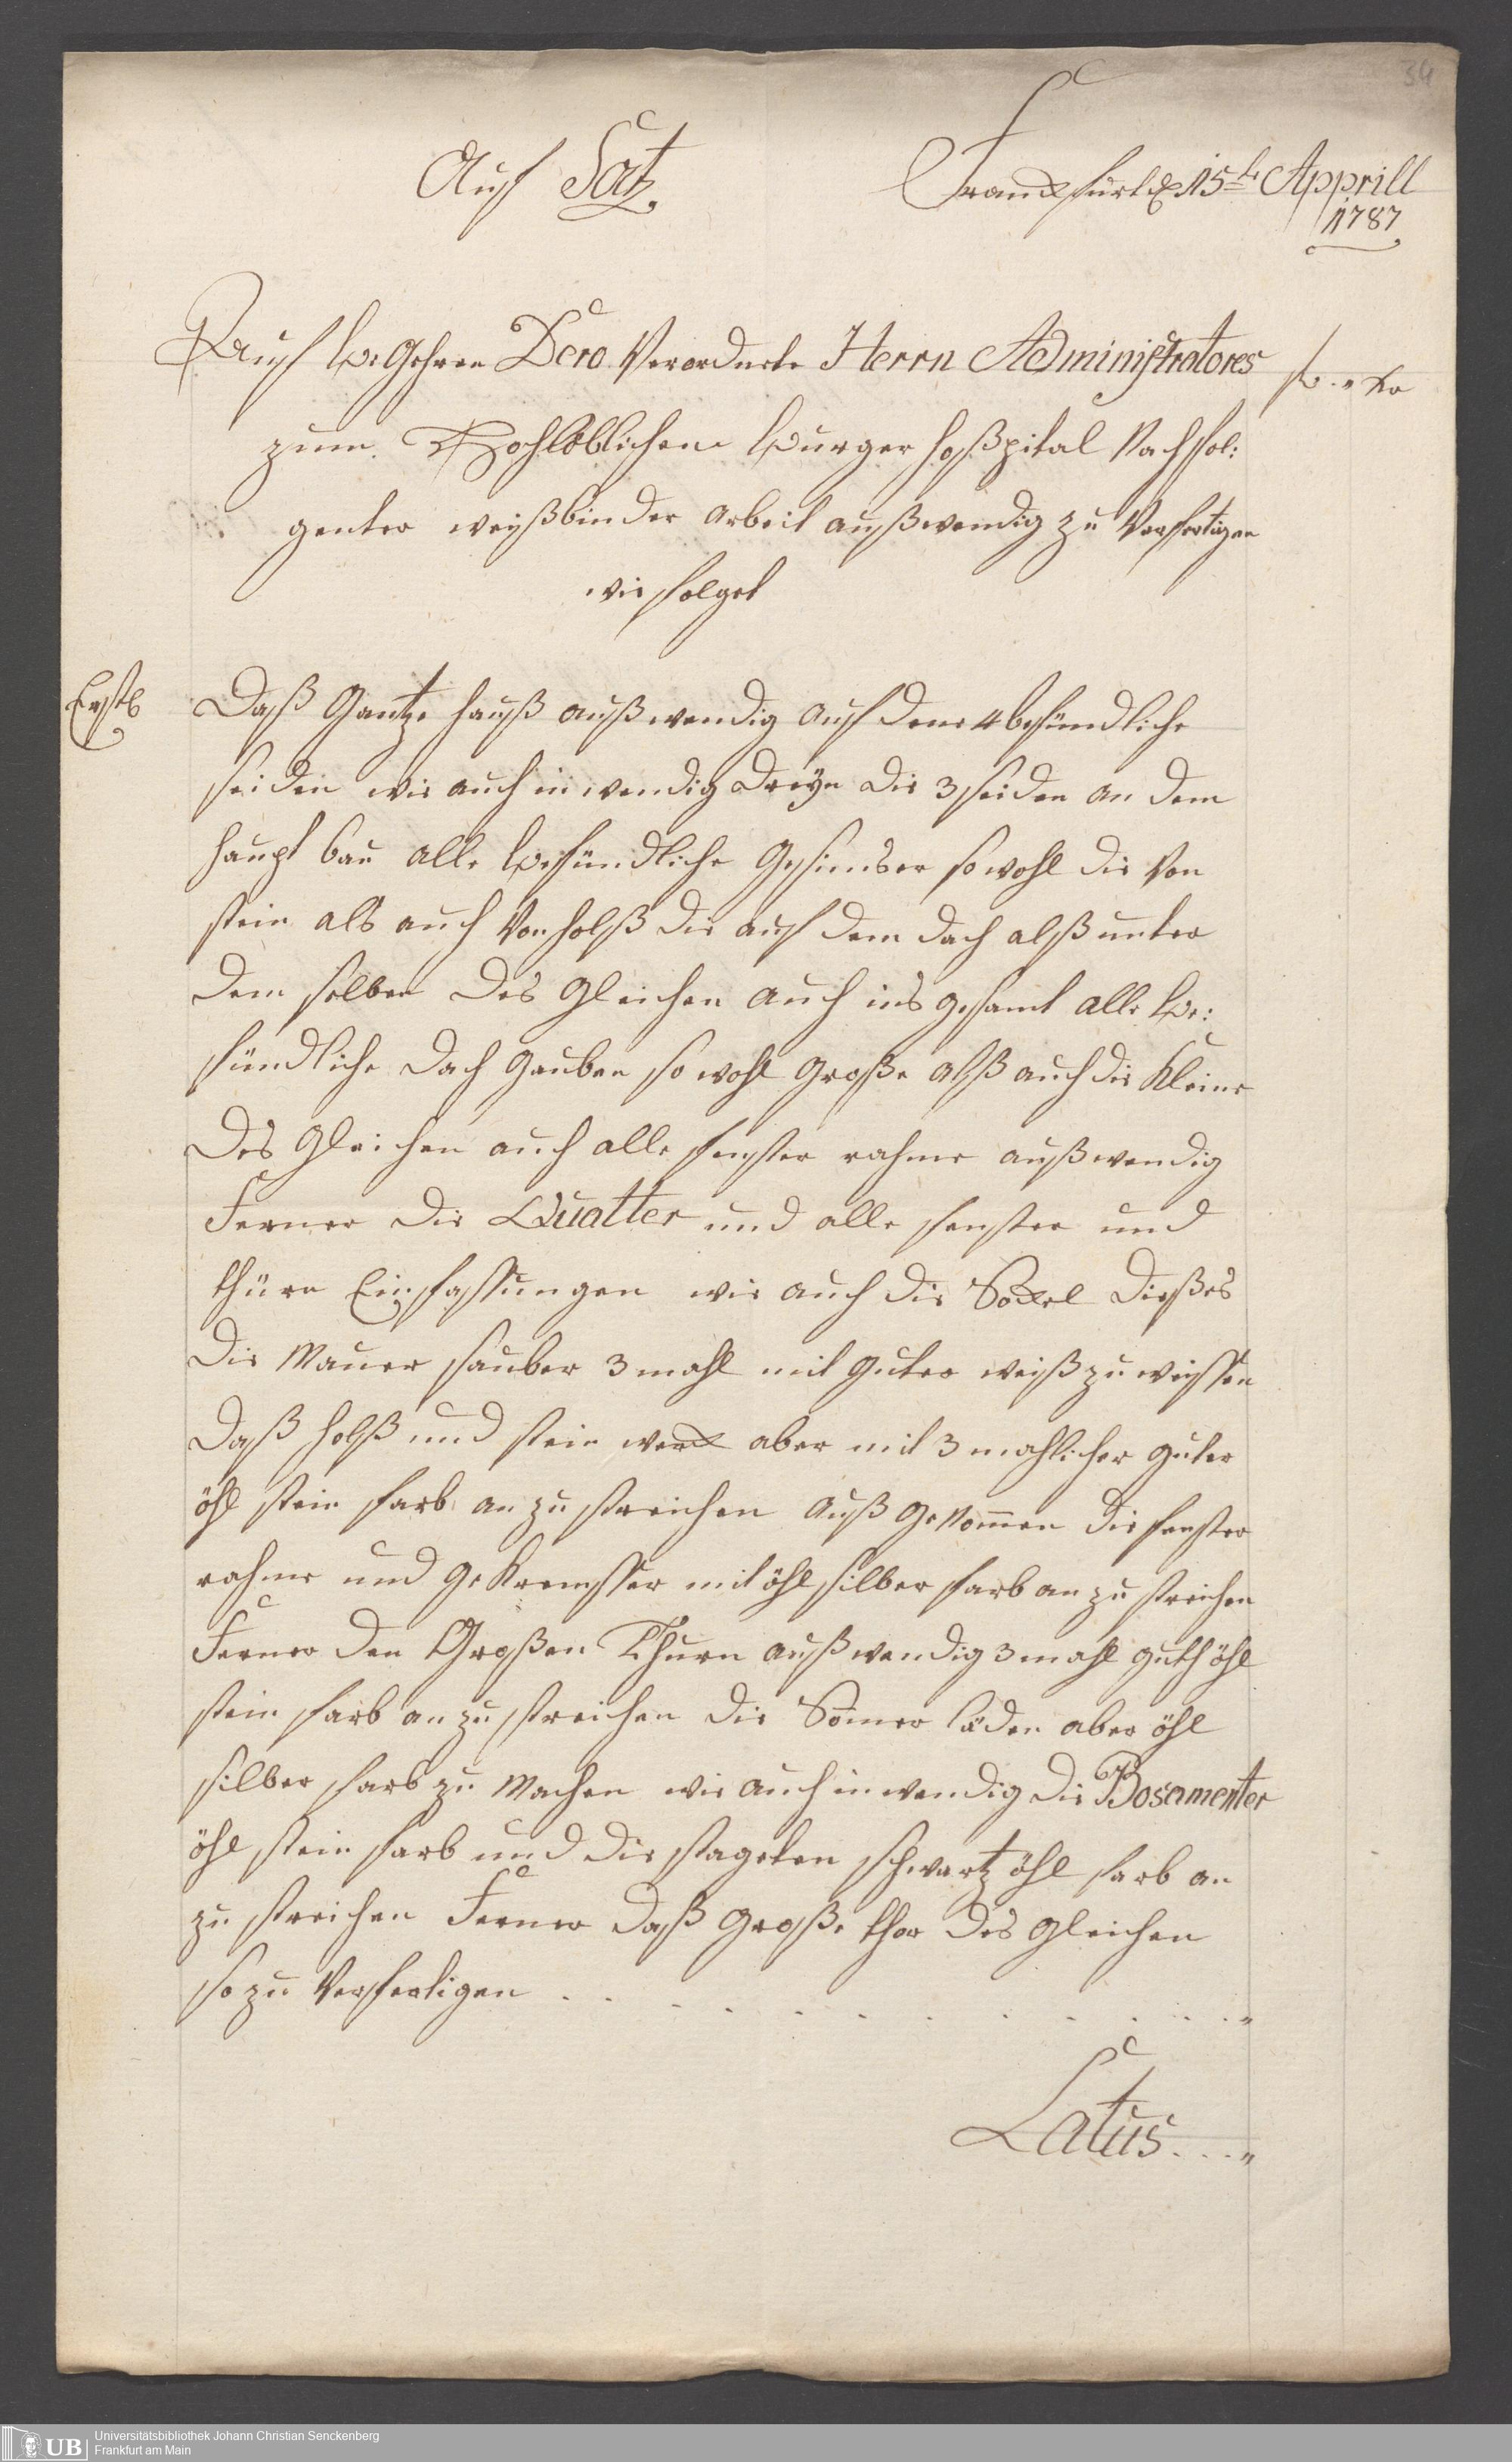 34
Auf Satz
Franckfurt d 15te Apprill
1787
Auf be Gehren Dero Verordnete Herrn Administratores
f .. xr
zum Hochlöblichen burger hoßpital Nach fol:
genter weißbinder arbeit außwendig zu Verfertigen
wie folget
Erstl
Daß Gantze hauß außwendig auf dene 4 befündliche
seiden wie auch inwendig dreyn die 3 seiden an dem
haupt bau alle befündliche Gesimbser sowohl die Von
stein als auch Von holß die auf dem dach alß unter
dem selben des Gleichen auch ins gesamt alle be:
fündliche dach Gauben so wohl große alß auch die Kleine
des Gleichen auch alle fenster rahme außwendig
Ferner die Quatter und alle fenster und
thüren Einfassungen wie auch die Sockel dießes
die Mauer sauber 3 mahl mit guter weiß zu weissen
daß holß und stein werck aber mit 3 mahlicher guter
öhl stein farb an zu streichen auß genommen die fenster
rahme und gekremsser mit öhl silber farb an zu streichen
Ferner den Großen Thurn außwendig 3 mahl guth öhl
stein farb an zu streichen die Somer läden aber öhl
silber farb zu Machen wie auch inwendig die Bosamenter
öhl stein farb und die stageten schwartz öhl farb an
zu streichen Ferner daß große thor des Gleichen
so zu Verfertigen . . . . . . . . . . . "
Latus . . . "
UB
Universitätsbibliothek Johann Christian Senckenberg
Frankfurt am Main